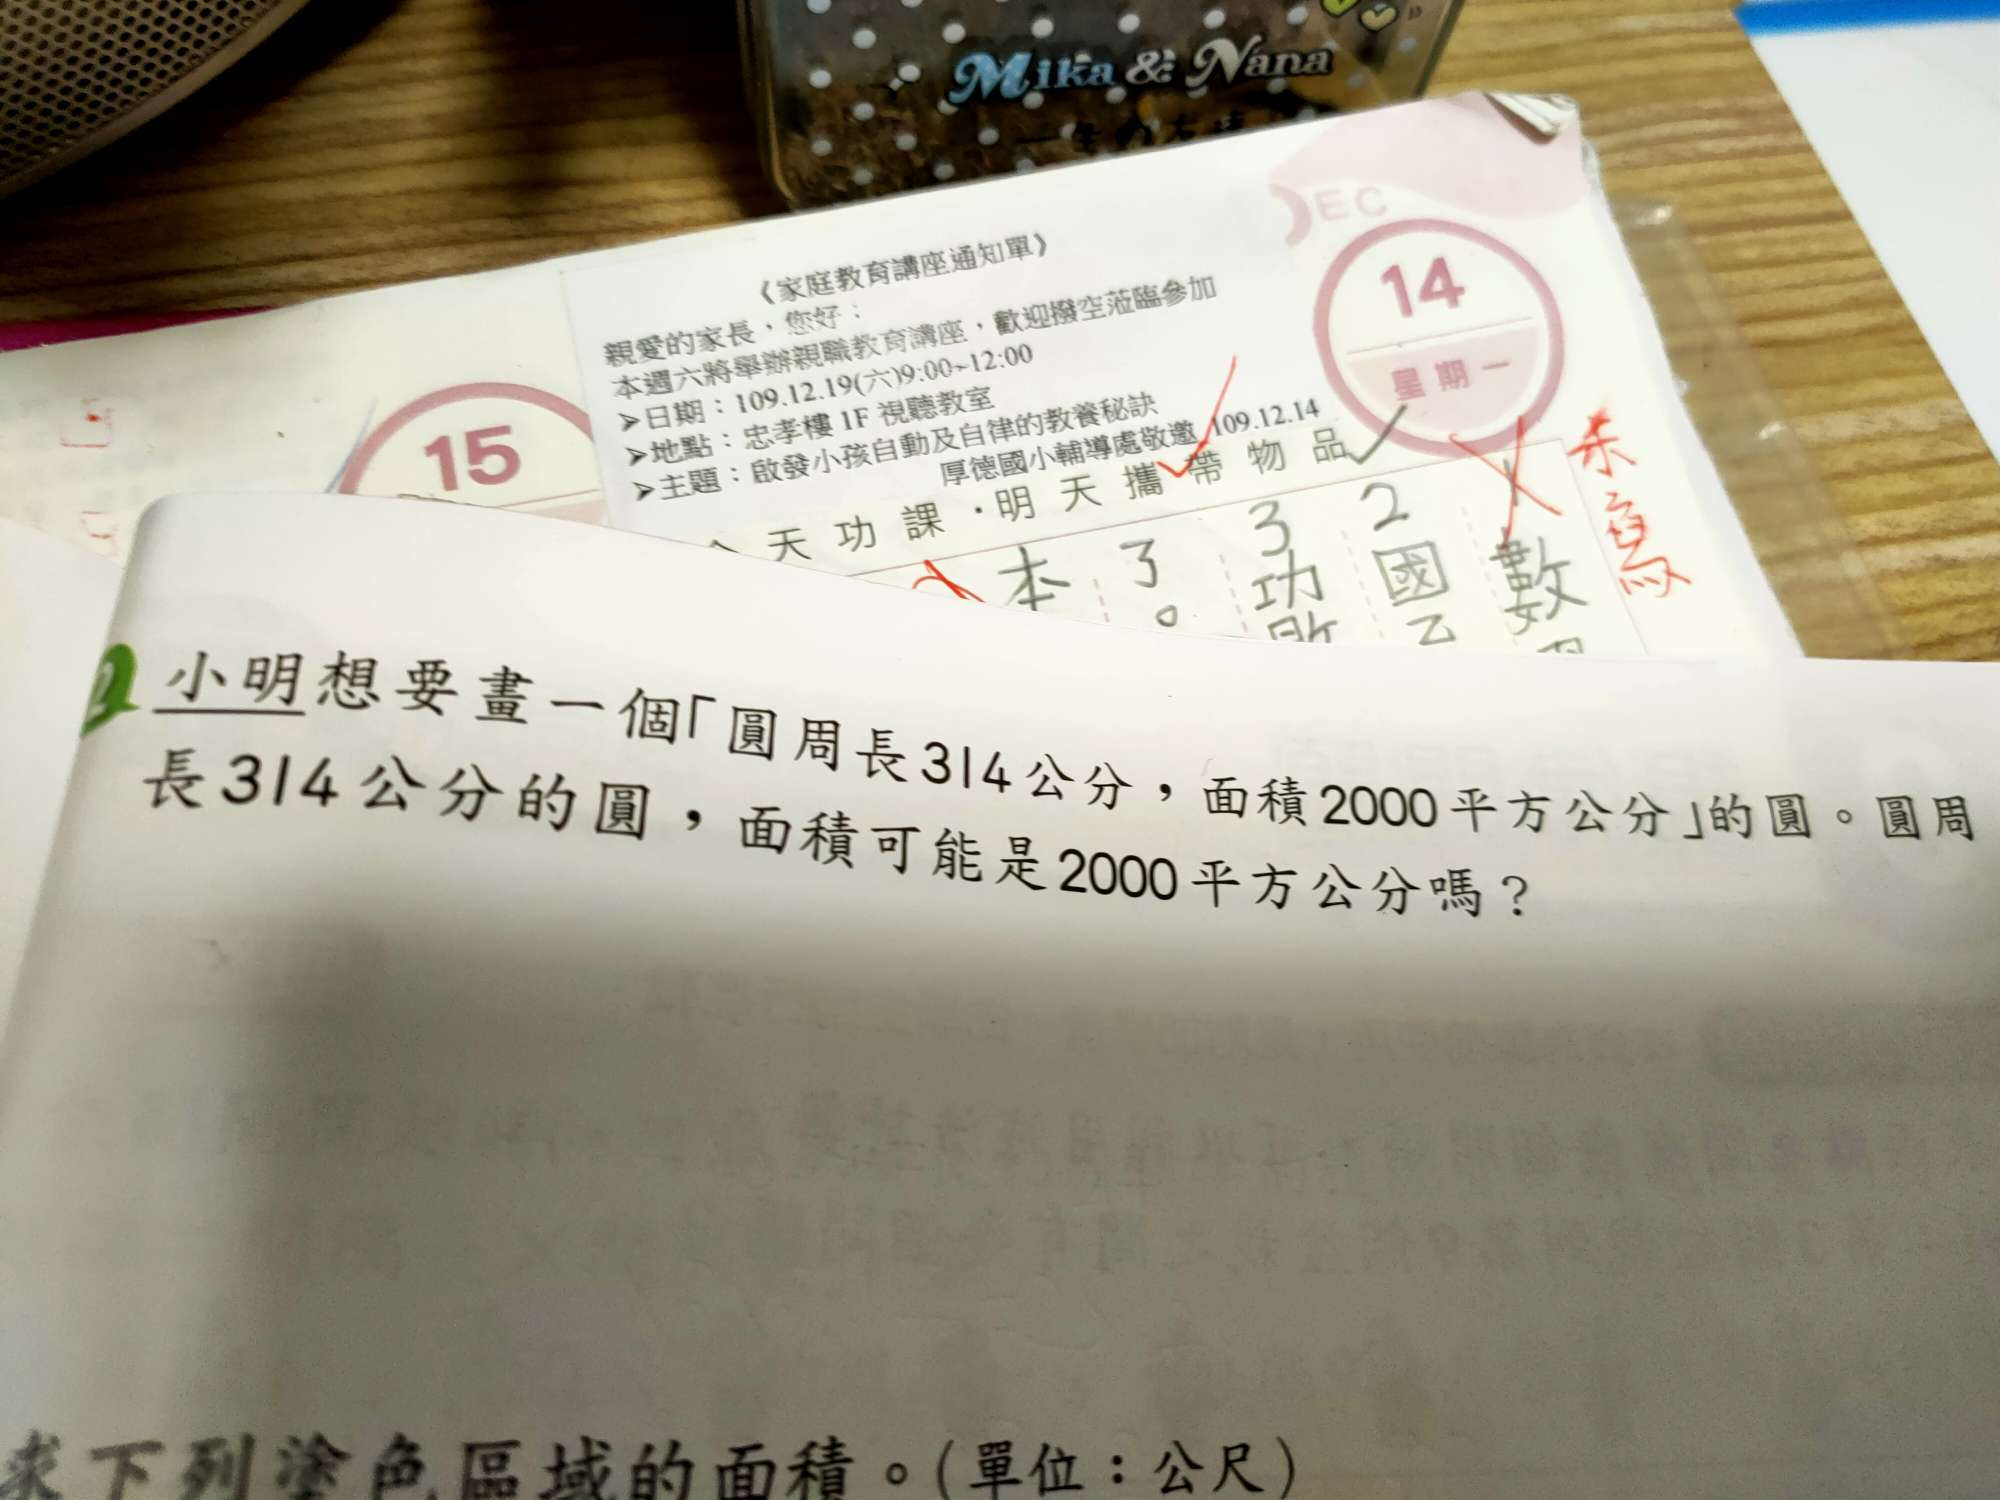 Mika & Nana
DEC
14
星期一
15
《家庭教育講座通知單》
親愛的家長，您好：
本週六將舉辦親職教育講座，歡迎撥空蒞臨參加
➢日期：109.12.19(六)9:00~12:00
➢地點：忠孝樓 1F 視聽教室
➢主題：啟發小孩自動及自律的教養秘訣
厚德國小輔導處敬邀 109.12.14
天功課·明天攜帶物品
未寫
數
2國
3功
3。
本
2 小明想要畫一個「圓周長314公分，面積2000平方公分」的圓。圓周
長314公分的圓，面積可能是2000平方公分嗎？
求下列塗色區域的面積。(單位：公尺)